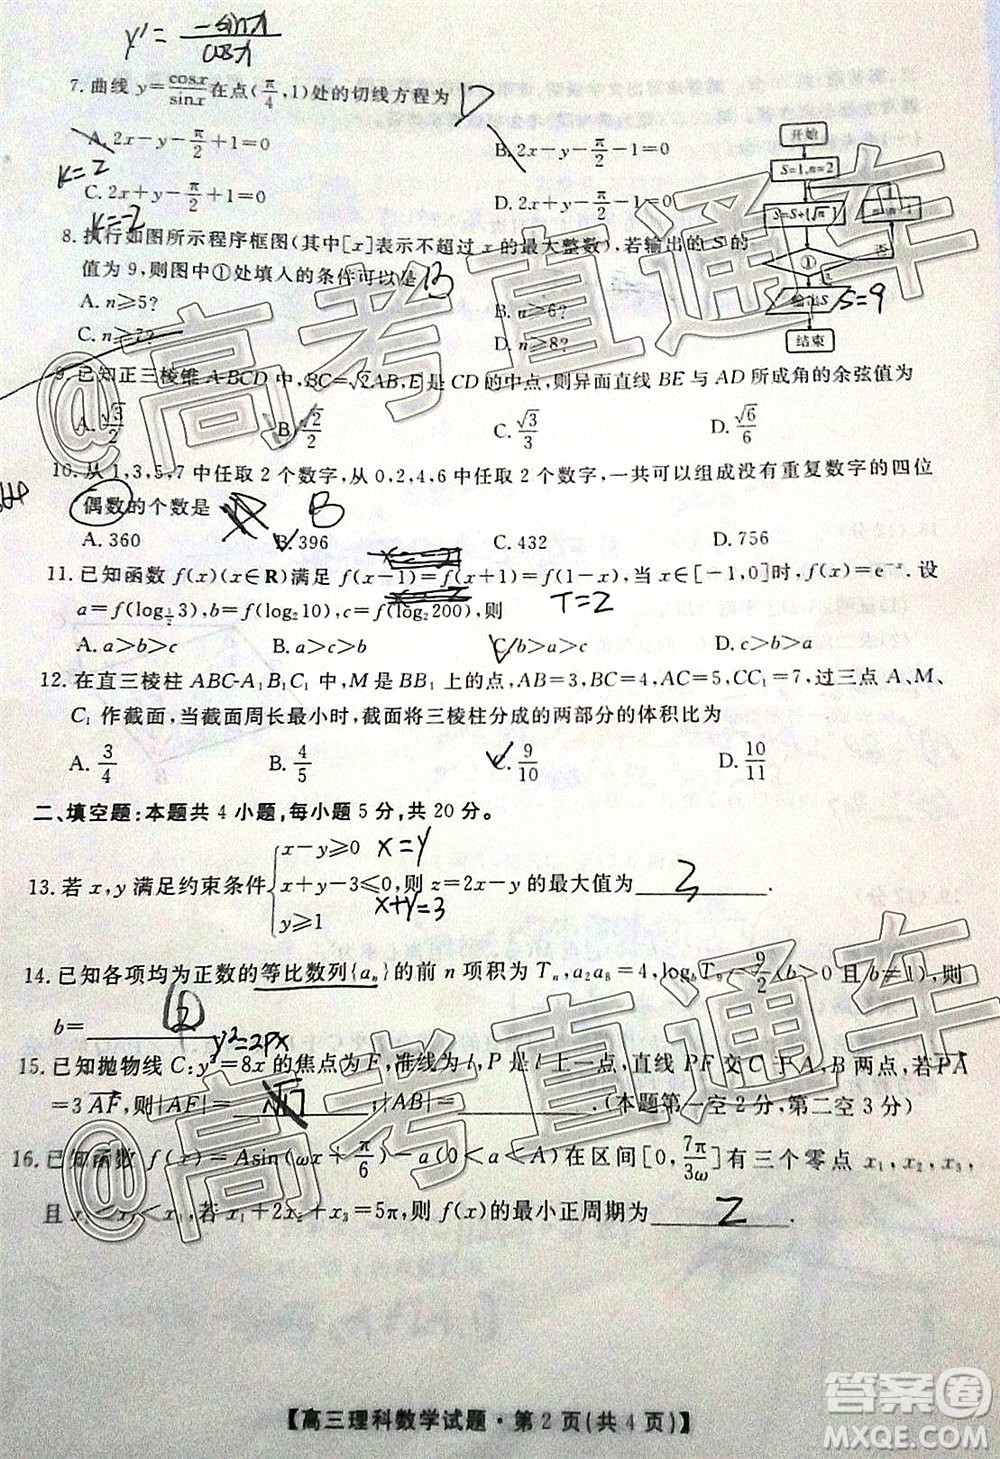 y' = -sinx/cosx
7. 曲线 y=cosx/sinx 在点(π/4,1)处的切线方程为 D
A. 2x-y-π/2+1=0 B. 2x-y-π/2-1=0
K=2
C. 2x+y-π/2+1=0 D. 2x+y-π/2-1=0
K=-2
8. 执行如图所示程序框图(其中[x]表示不超过 x 的最大整数),若输出的 S 的
值为 9,则图中①处填入的条件可以是 B
A. n≥5? B. n≥6?
C. n≥7? D. n≥8?
开始
S=1,n=2
S=S+[√n]
①
否
输出S
结束
S=9
9. 已知正三棱锥 A-BCD 中,BC=√2AB,E是 CD 的中点,则异面直线 BE 与 AD 所成角的余弦值为
A. √3/2 B. √2/2 C. √3/3 D. √6/6
10. 从 1,3,5,7 中任取 2 个数字,从 0,2,4,6 中任取 2 个数字,一共可以组成没有重复数字的四位
偶数的个数是 B
A. 360 B. 396 C. 432 D. 756
11. 已知函数 f(x)(x∈R)满足 f(x-1)=f(x+1)=f(1-x),当 x∈[-1,0]时,f(x)=e⁻ˣ. 设
a=f(log½3),b=f(log₂10),c=f(log₂200),则 T=2
A. a>b>c B. a>c>b C. b>a>c D. c>b>a
12. 在直三棱柱 ABC-A₁B₁C₁ 中,M 是 BB₁ 上的点,AB=3,BC=4,AC=5,CC₁=7,过三点 A、M、
C₁ 作截面,当截面周长最小时,截面将三棱柱分成的两部分的体积比为
A. 3/4 B. 4/5 C. 9/10 D. 10/11
二、填空题:本题共 4 小题,每小题 5 分,共 20 分。
x-y≥0 x=y
13. 若 x,y 满足约束条件{x+y-3≤0,则 z=2x-y 的最大值为 3 .
y≥1 x+y=3
14. 已知各项均为正数的等比数列{aₙ}的前 n 项积为 Tₙ,a₂a₈=4,log_b T₉=9/2(b>0 且 b≠1),则
b=
y²=2px
15. 已知抛物线 C:y²=8x 的焦点为 F,准线为 l,P 是 l 上一点,直线 PF 交 C 于 A、B 两点,若PA
=3AF,则|AF|= ;|AB|= .(本题第一空 2 分,第二空 3 分)
16. 已知函数 f(x)=Asin(ωx+π/6)-a(0<a<A)在区间[0,7π/3ω]有三个零点 x₁,x₂,x₃,
且 x₁<x₂<x₃,若 x₁+2x₂+x₃=5π,则 f(x)的最小正周期为 2 .
【高三理科数学试题·第 2 页(共 4 页)】
@高考直通车
@高考直通车
答案圈
MXQE.COM